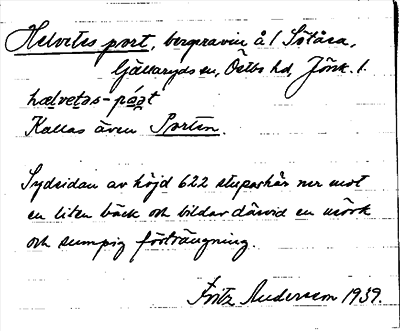 Helvetes port, bergravin å / Sötåsa,
Gällaryds sn, Östbo hd, Jönk. l.
hælvetəs-pårt
Kallas även Porten.
Sydsidan av höjd 622 stupar här ner mot
en liten bäck och bildar därvid en mörk
och sumpig förträngning.
Fritz Andersson 1939.